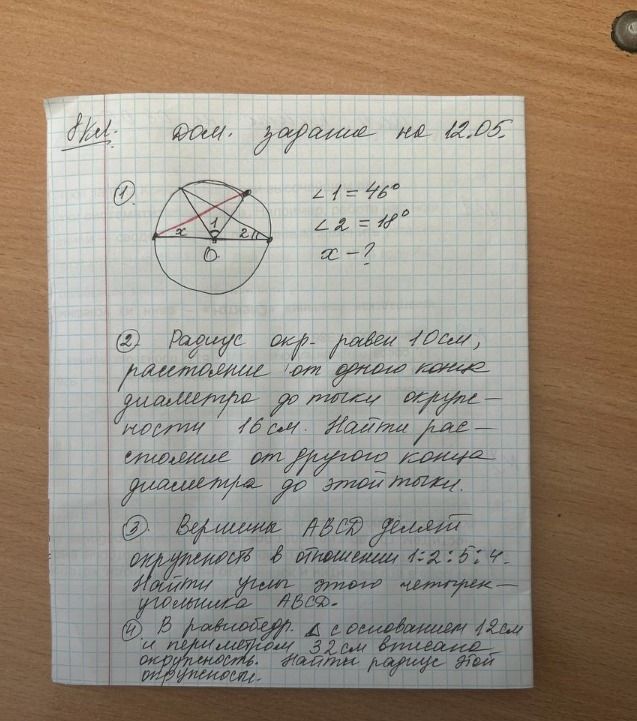 8 кл. Дом. задание на 12.05.
① ∠1 = 46°
∠2 = 18°
x - ?
1
x 2
O
② Радиус окр. равен 10см,
расстояние от одного конца
диаметра до точки окруж-
ности 16 см. Найти рас-
стояние от другого конца
диаметра до этой точки.
③ Вершины ABCD делят
окружность в отношении 1:2:5:4.
Найти углы этого четырех-
угольника ABCD.
④ В равнобедр. △ с основанием 12см
и периметром 32 см вписана
окружность. Найти радиус этой
окружности.